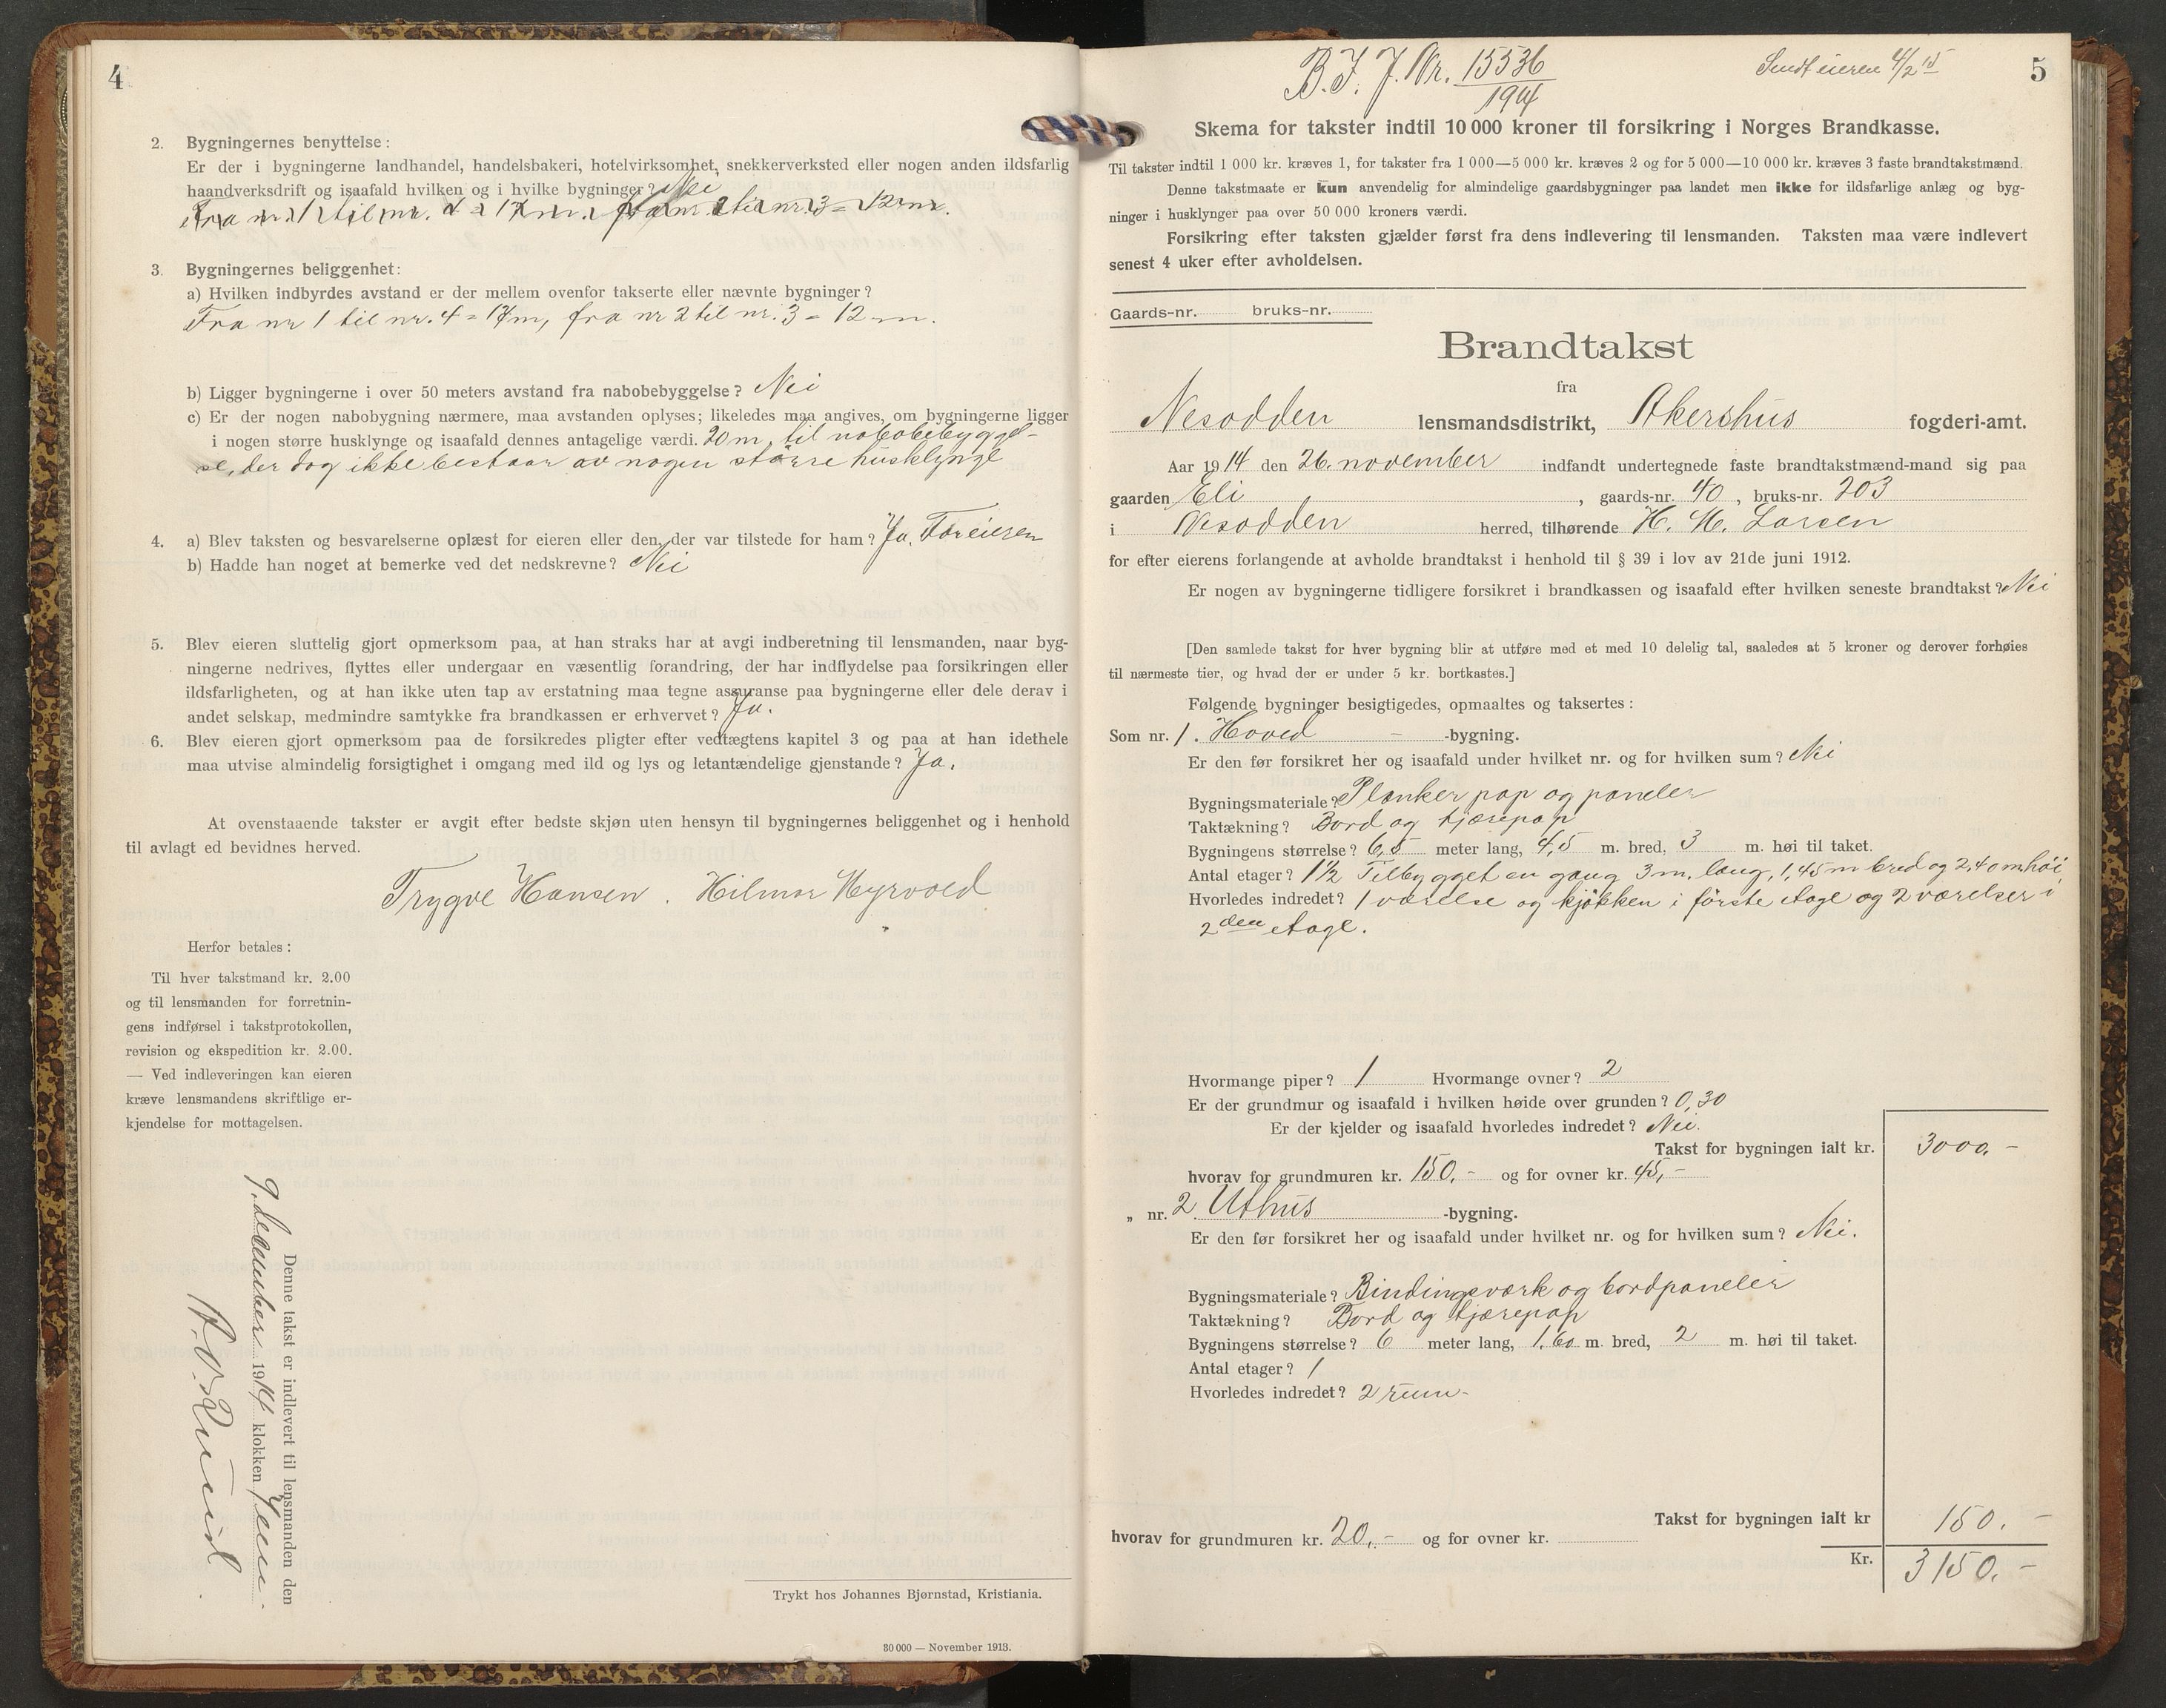 4
2. Bygningernes benyttelse:
Er der i bygningerne landhandel, handelsbakeri, hotelvirksomhet, snekkerverksted eller nogen anden ildsfarlig
haandverksdrift og isaafald hvilken og i hvilke bygninger?
Fra nr 1 til nr. 4 = 17 m. fra nr 2 til nr. 3 = 12 m.
3. Bygningernes beliggenhet:
a) Hvilken indbyrdes avstand er der mellem ovenfor takserte eller nævnte bygninger?
Fra nr 1 til nr. 4 = 17m, fra nr 2 til nr. 3 = 12 m.
b) Ligger bygningerne i over 50 meters avstand fra nabobebyggelse? Nei
c) Er der nogen nabobygning nærmere, maa avstanden oplyses; likeledes maa angives, om bygningerne ligger
i nogen større husklynge og isaafald dennes antagelige værdi. 20 m, til nabobebyggel-
se, der dog ikke bestaar av nogen större husklynge
4. a) Blev taksten og besvarelserne oplæst for eieren eller den, der var tilstede for ham? Ja, For eieren
b) Hadde han noget at bemerke ved det nedskrevne? Nei
5. Blev eieren sluttelig gjort opmerksom paa, at han straks har at avgi indberetning til lensmanden, naar byg-
ningerne nedrives, flyttes eller undergaar en væsentlig forandring, der har indflydelse paa forsikringen eller
ildsfarligheten, og at han ikke uten tap av erstatning maa tegne assuranse paa bygningerne eller dele derav i
andet selskap, medmindre samtykke fra brandkassen er erhvervet? Ja.
6. Blev eieren gjort opmerksom paa de forsikredes pligter efter vedtægtens kapitel 3 og paa at han idethele
maa utvise almindelig forsigtighet i omgang med ild og lys og letantændelige gjenstande? Ja.
At ovenstaaende takster er avgit efter bedste skjøn uten hensyn til bygningernes beliggenhet og i henhold
til avlagt ed bevidnes herved.
Trygve Hansen. Hilmar Myrvold
Herfor betales:
Til hver takstmand kr. 2.00
og til lensmanden for forretnin-
gens indførsel i takstprotokollen,
revision og ekspedition kr. 2.00.
— Ved indleveringen kan eieren
kræve lensmandens skriftlige er-
kjendelse for mottagelsen.
Denne takst er indlevert til lensmanden den
9. december 1914 klokken
Trykt hos Johannes Bjørnstad, Kristiania.
30 000 — November 1913.
B. F. J. Nr. 15536/1914
Sendt eieren 4/2 15
5
Skema for takster indtil 10 000 kroner til forsikring i Norges Brandkasse.
Til takster indtil 1 000 kr. kræves 1, for takster fra 1 000—5 000 kr. kræves 2 og for 5 000—10 000 kr. kræves 3 faste brandtakstmænd.
Denne takstmaate er kun anvendelig for almindelige gaardsbygninger paa landet men ikke for ildsfarlige anlæg og byg-
ninger i husklynger paa over 50 000 kroners værdi.
Forsikring efter taksten gjælder først fra dens indlevering til lensmanden. Taksten maa være indlevert
senest 4 uker efter avholdelsen.
Gaards-nr. bruks-nr.
Brandtakst
fra
Nesodden lensmandsdistrikt, Akershus fogderi-amt.
Aar 1914 den 26. november indfandt undertegnede faste brandtakstmænd-mand sig paa
gaarden Eli, gaards-nr. 40, bruks-nr. 203
i Nesodden herred, tilhørende H. M. Larsen
for efter eierens forlangende at avholde brandtakst i henhold til § 39 i lov av 21de juni 1912.
Er nogen av bygningerne tidligere forsikret i brandkassen og isaafald efter hvilken seneste brandtakst? Nei
[Den samlede takst for hver bygning blir at utføre med et med 10 delelig tal, saaledes at 5 kroner og derover forhøies
til nærmeste tier, og hvad der er under 5 kr. bortkastes.]
Følgende bygninger besigtigedes, opmaaltes og taksertes:
Som nr. 1. Hoved -bygning.
Er den før forsikret her og isaafald under hvilket nr. og for hvilken sum? Nei
Bygningsmateriale? Planker pap og paneler
Taktækning? Bord og tjærepap
Bygningens størrelse? 6,5 meter lang, 4,5 m. bred, 3 m. høi til taket.
Antal etager? 1 1/2 Tilbygget en gang 3 m. lang, 1,45 m bred og 2,40 m høi,
Hvorledes indredet? 1 værelse og kjökken i förste etage og 2 værelser i
2den etage.
Hvormange piper? 1 Hvormange ovner? 2
Er der grundmur og isaafald i hvilken høide over grunden? 0,30
Er der kjelder og isaafald hvorledes indredet? Nei.
Takst for bygningen ialt kr. 3000.-
hvorav for grundmuren kr. 150.- og for ovner kr. 45,-
„ nr. 2 Uthus -bygning.
Er den før forsikret her og isaafald under hvilket nr. og for hvilken sum? Nei.
Bygningsmateriale? Bindingsværk og bordpaneler
Taktækning? Bord og tjærepap
Bygningens størrelse? 6 meter lang, 1.60 m. bred, 2 m. høi til taket.
Antal etager? 1
Hvorledes indredet? 2 rum-
Takst for bygningen ialt kr 150.-
hvorav for grundmuren kr. 20,- og for ovner kr.
Kr. 3150.-